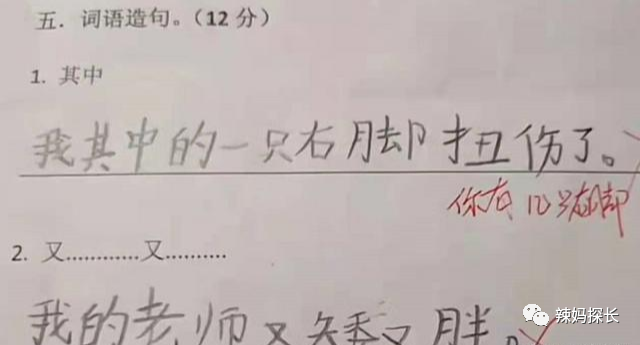 五．词语造句。（12 分）
1. 其中
我其中的一只右脚扭伤了。
你有几只右脚
2. 又…………又……….
我的老师又矮又胖。
辣妈探长